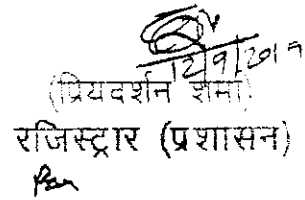 12/9/2017
(प्रियदर्शन शर्मा)
रजिस्ट्रार (प्रशासन)